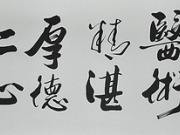 醫術
精湛
厚德
仁心